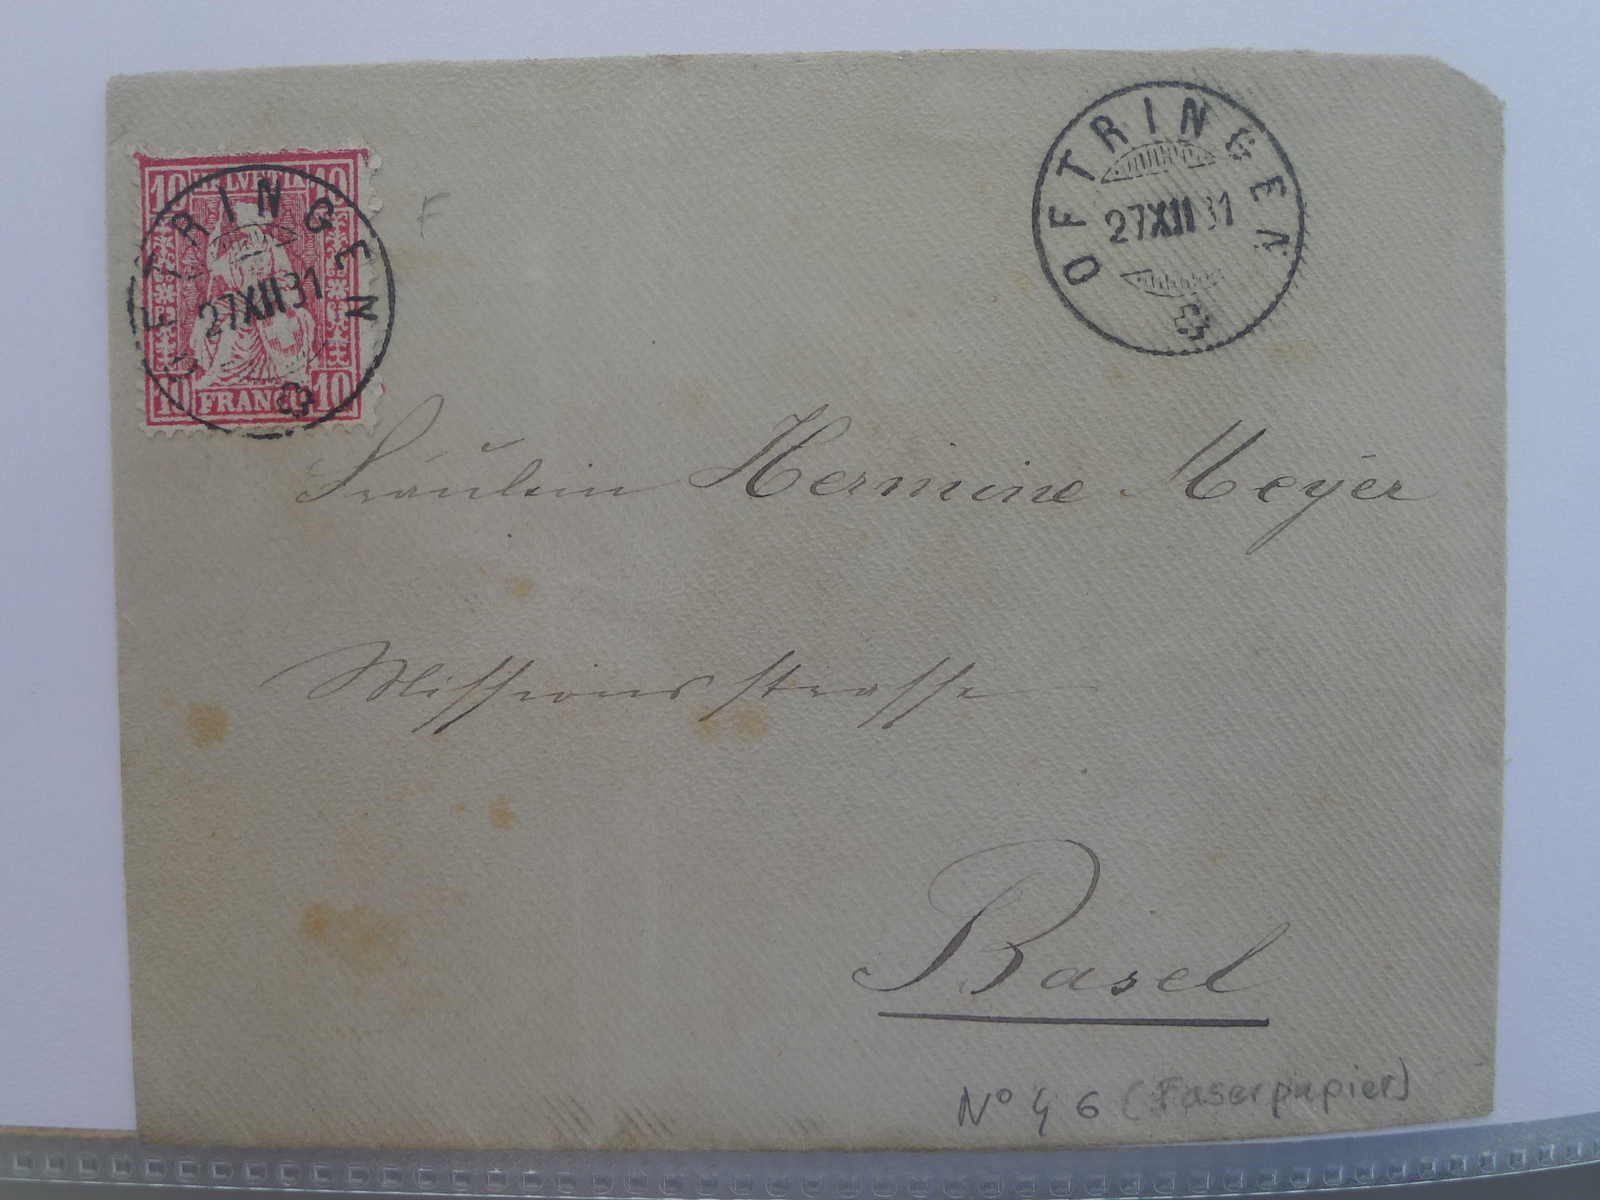 10 HELVETIA 10
10 FRANCO 10
OFTRINGEN
27 XII 81
F
OFTRINGEN
27 XII 81
Fräulein Hermine Meyer
Missionsstrasse
Basel
No 46 (Faserpapier)